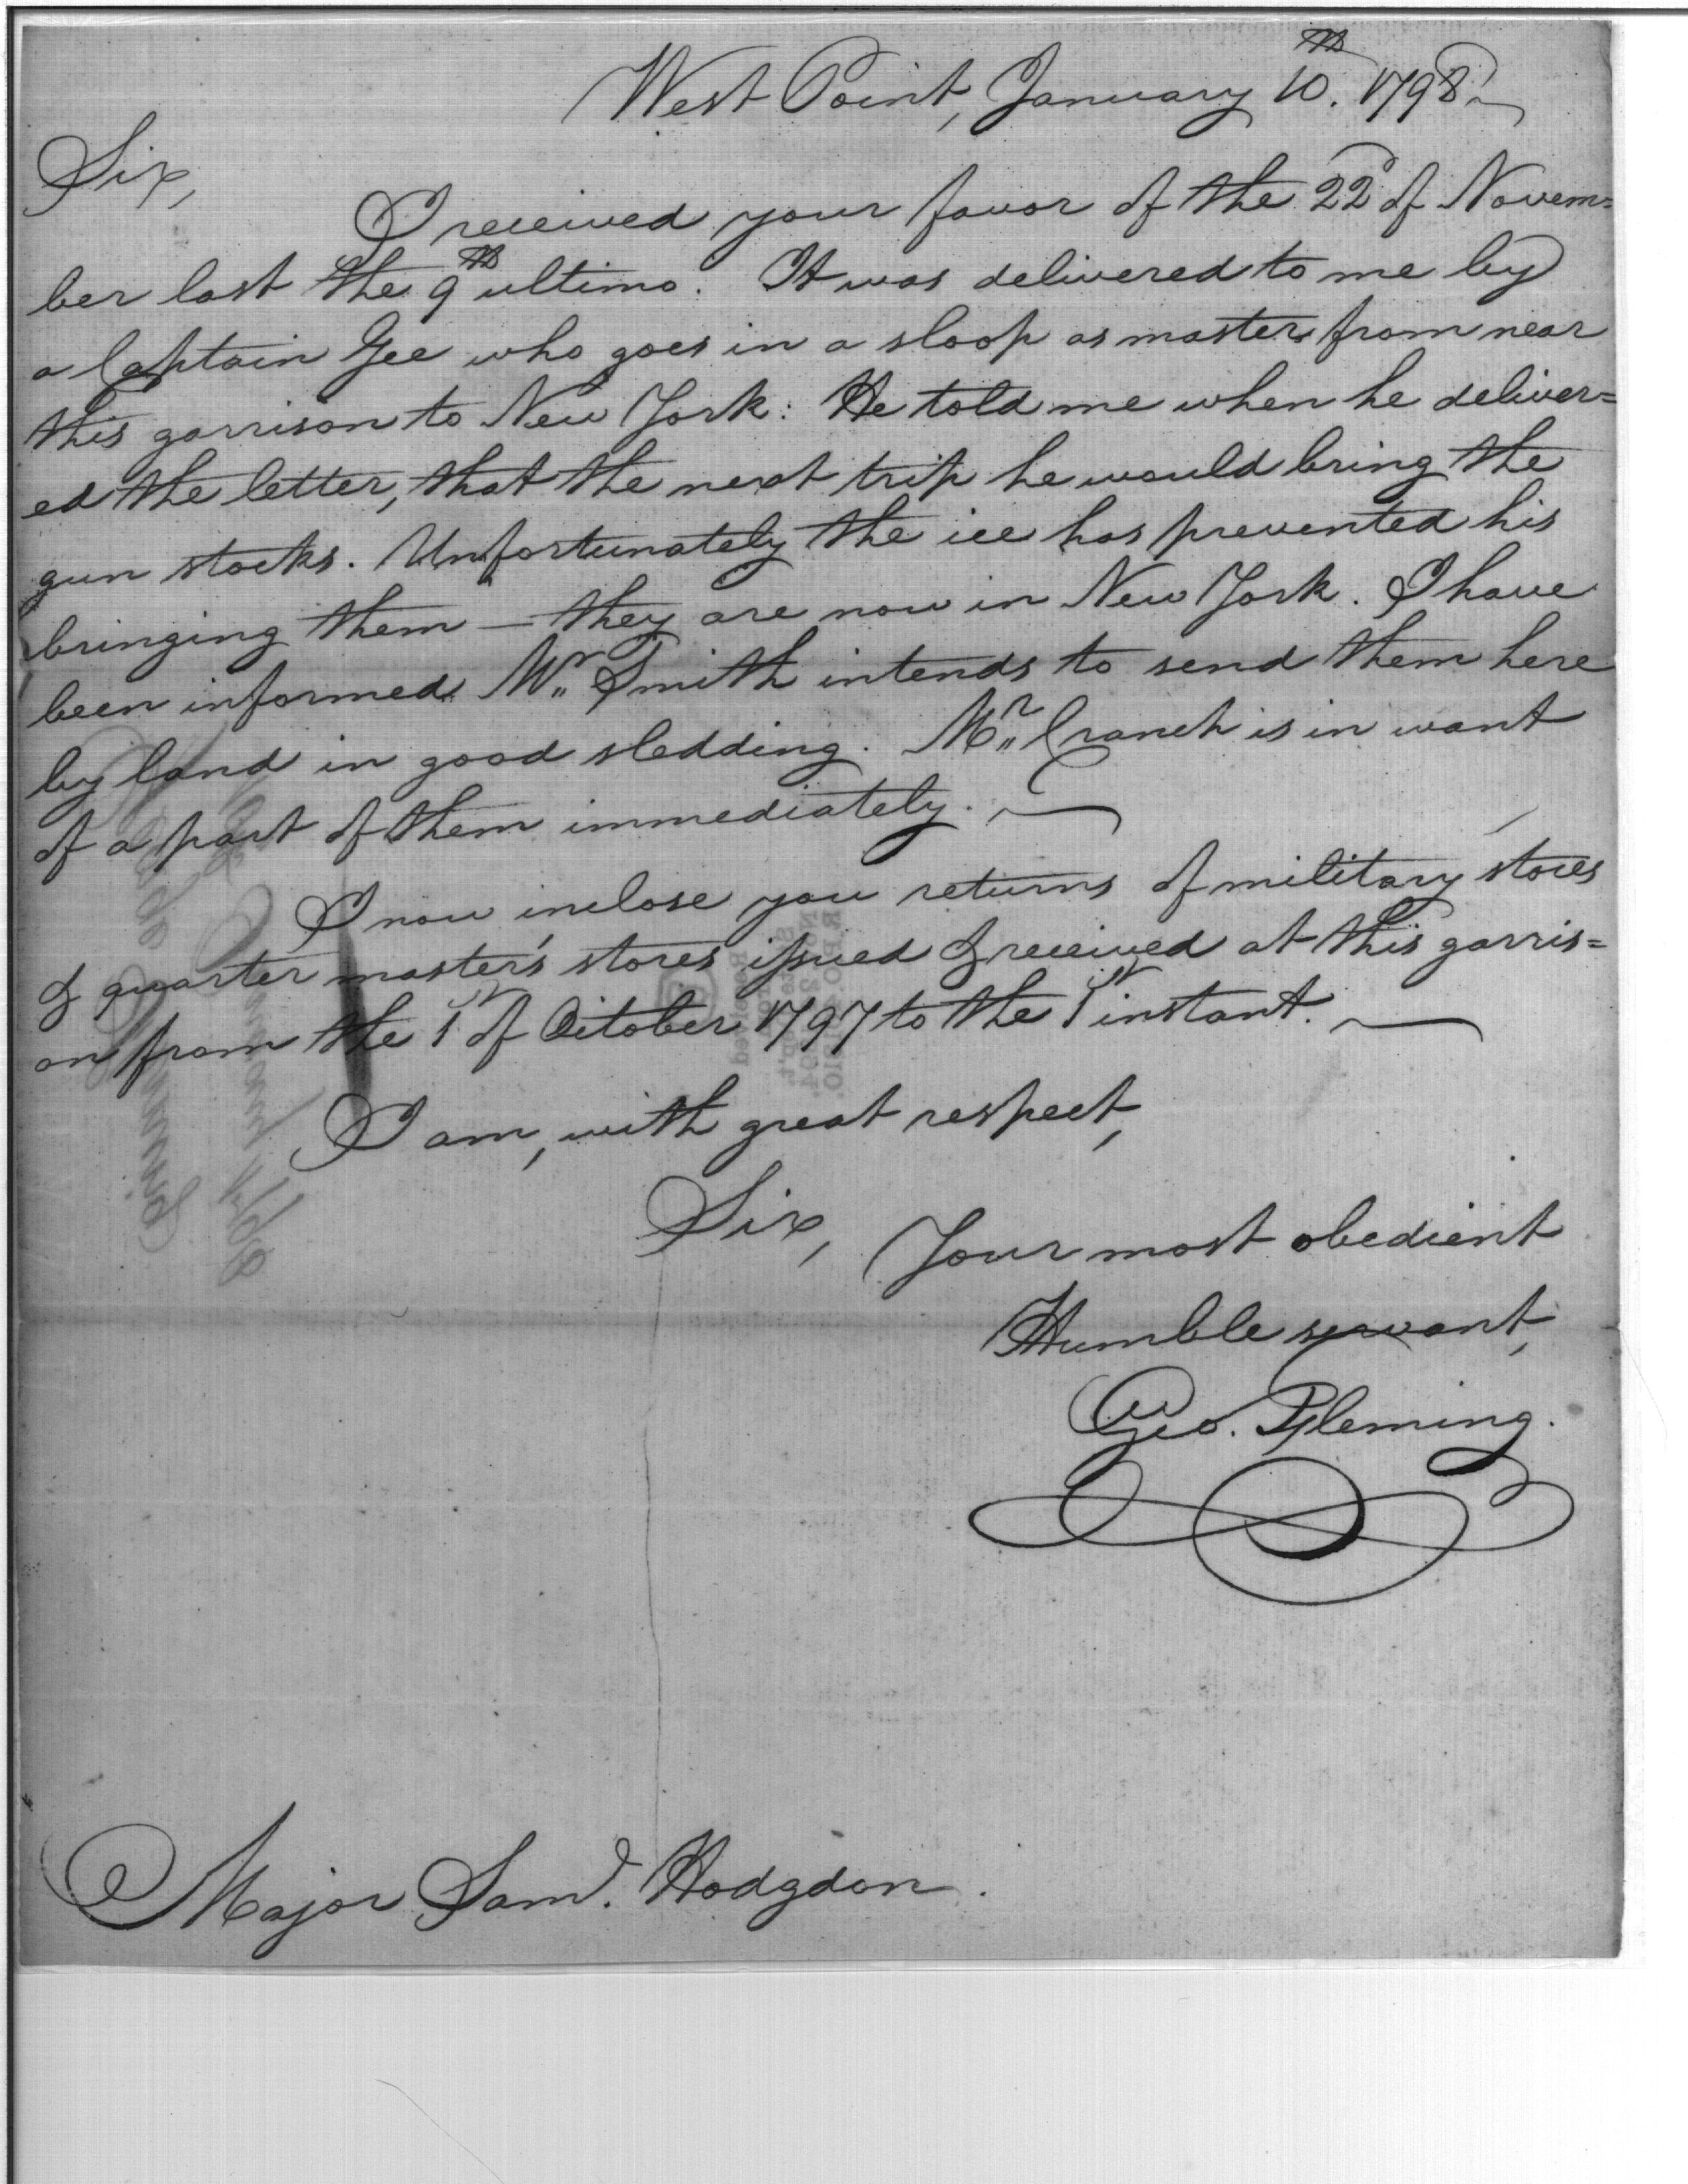 West Point, January 10th. 1798.
Sir,
I received your favor of the 22d of Novem=
ber last the 9th ultimo. It was delivered to me by
a Captain Gee who goes in a sloop as master from near
this garrison to New York: He told me when he deliver=
ed the letter, that the next trip he would bring the
gun stocks. Unfortunately the ice has prevented his
bringing them — they are now in New York. I have
been informed Mr. Smith intends to send them here
by land in good sledding. Mr. Cranch is in want
of a part of them immediately.
I now inclose you returns of military stores
& quarter master's stores issued & received at this garris=
on from the 1st of October 1797 to the 1st instant.
I am, with great respect,
Sir, Your most obedient
Humble servant,
Geo. Fleming.
Major Saml. Hodgdon.